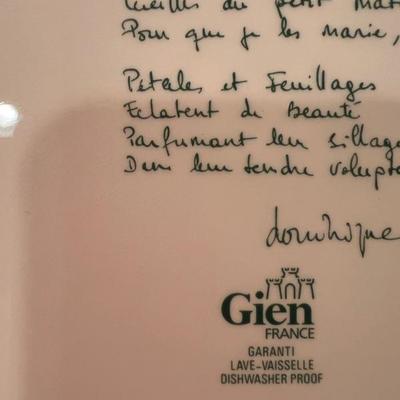 Cueillis du petit Mat
Pour que je les marie,
Pétales et Feuillages
Eclatent de Beauté
Parfumant leur sillage
Dans leur tendre volupté
dominique
Gien
FRANCE
GARANTI
LAVE-VAISSELLE
DISHWASHER PROOF